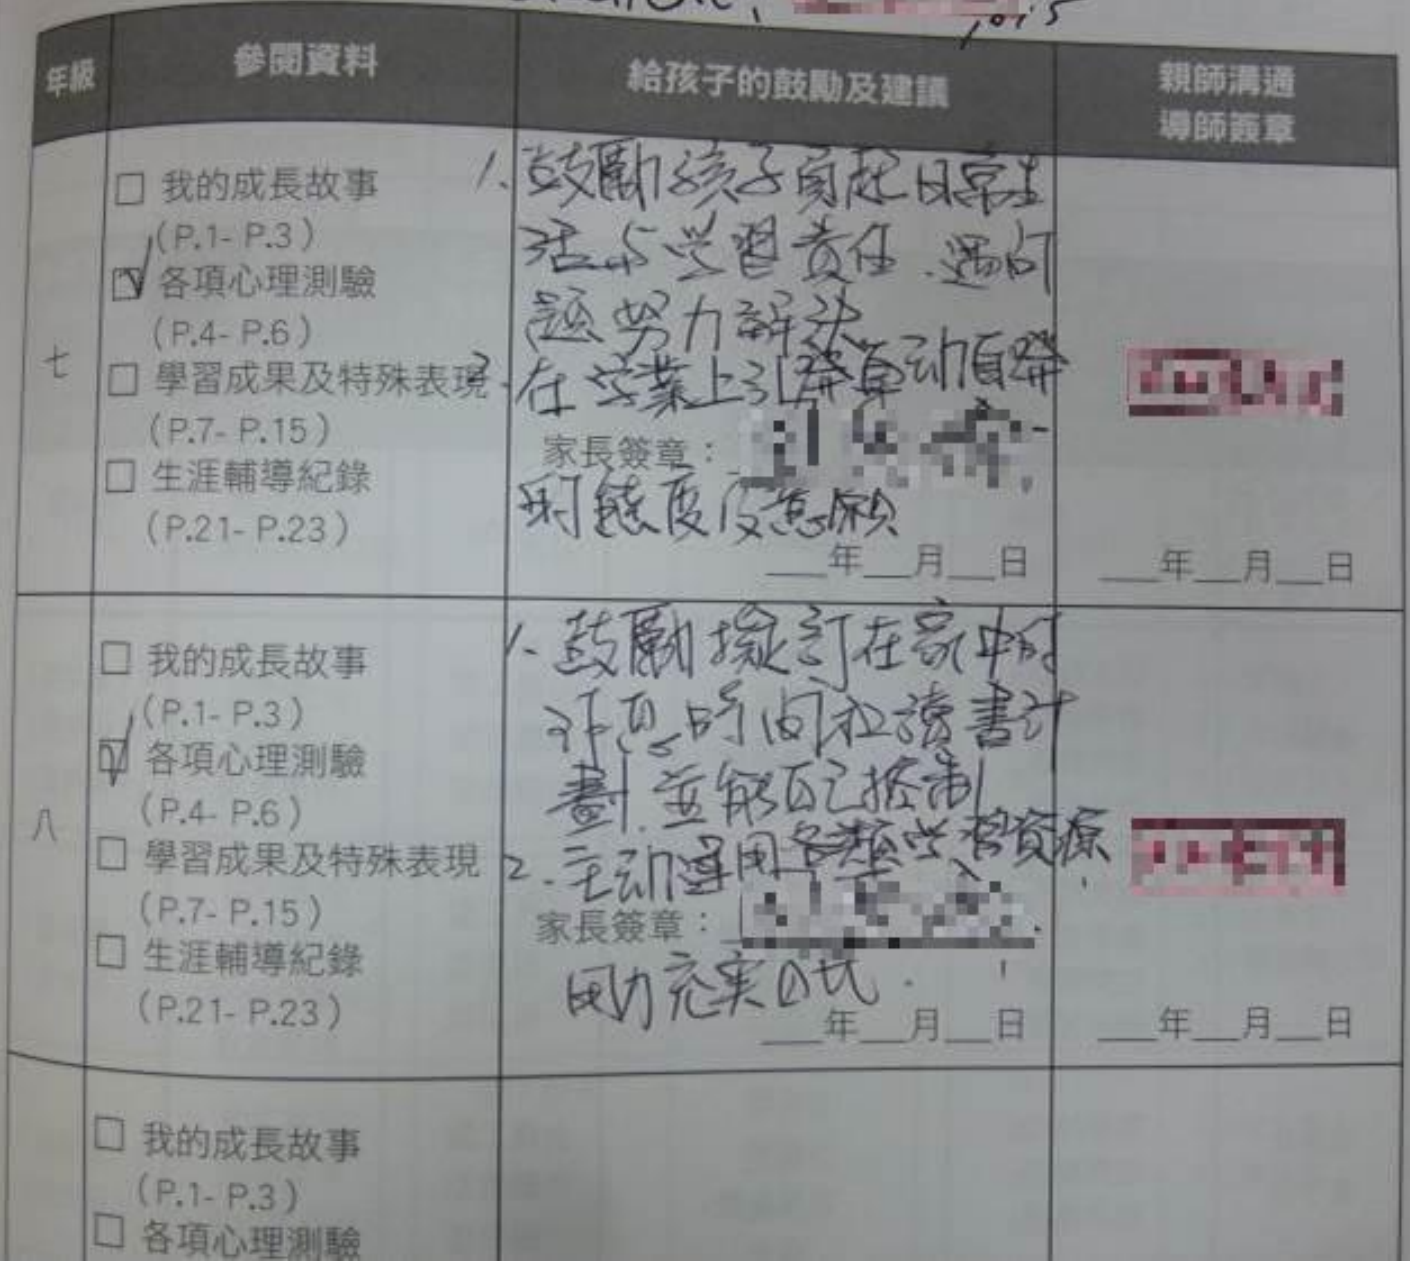 年級 參閱資料 給孩子的鼓勵及建議 親師溝通
導師簽章
七
□ 我的成長故事
(P.1- P.3)
☑ 各項心理測驗
(P.4- P.6)
□ 學習成果及特殊表現
(P.7- P.15)
□ 生涯輔導紀錄
(P.21- P.23)
1. 鼓勵孩子負起日常生
活与学習責任.遇问
題努力解決
2. 在学業上引發自动自發
家長簽章：
的態度及意願
___年___月___日
___年___月___日
八
□ 我的成長故事
(P.1- P.3)
☑ 各項心理測驗
(P.4- P.6)
□ 學習成果及特殊表現
(P.7- P.15)
□ 生涯輔導紀錄
(P.21- P.23)
1. 鼓勵擬訂在家中的
作息時间和讀書計
劃.並能自己控制
2. 主动運用各類学習資源
家長簽章：
充实自
___年___月___日
___年___月___日
□ 我的成長故事
(P.1- P.3)
□ 各項心理測驗